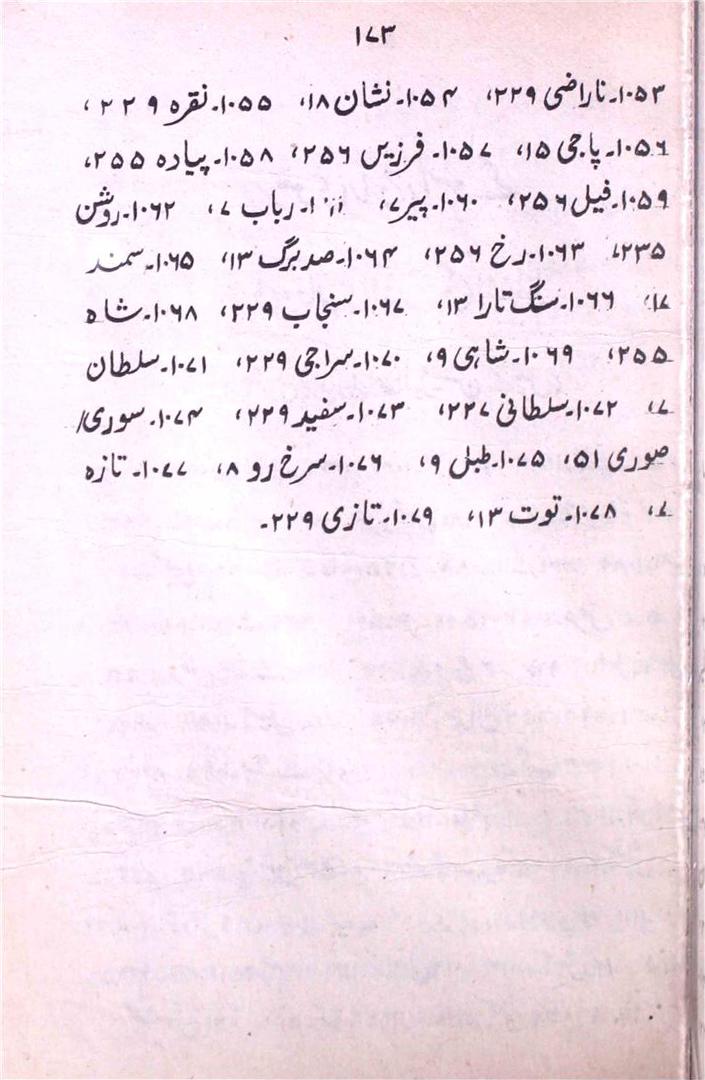 ۱۷۳
۱۰۵۳۔ناراضی ۲۲۹، ۱۰۵۴۔نشان ۱۸، ۱۰۵۵۔نقرہ ۲۲۹،
۱۰۵۶۔پاجی ۱۵، ۱۰۵۷۔ فرزیں ۲۵۶، ۱۰۵۸۔ پیادہ ۲۵۵،
۱۰۵۹۔فیل ۲۵۶، ۱۰۶۰۔پیر۷، رباب ۷، ۱۰۶۲۔روشن
۲۳۵، ۱۰۶۳۔رخ ۲۵۶، ۱۰۶۴۔صد برگ ۱۳، ۱۰۶۵۔سمند
۱۷، ۱۰۶۶۔سنگ تارا ۱۳، ۱۰۶۷۔سنجاب ۲۲۹، ۱۰۶۸۔شاہ
۲۵۵، ۱۰۶۹۔شاہی ۹، ۱۰۷۰۔سراجی ۲۲۹، ۱۰۷۱۔سلطان
۷، ۱۰۷۲۔سلطانی ۲۲۷، ۱۰۷۳۔سفید ۲۲۹، ۱۰۷۴۔سوری/
صوری ۵۱، ۱۰۷۵۔طبل ۹، ۱۰۷۶۔سرخ رو ۸، ۱۰۷۷۔تازہ
۷، ۱۰۷۸۔توت ۱۳، ۱۰۷۹۔تازی ۲۲۹۔